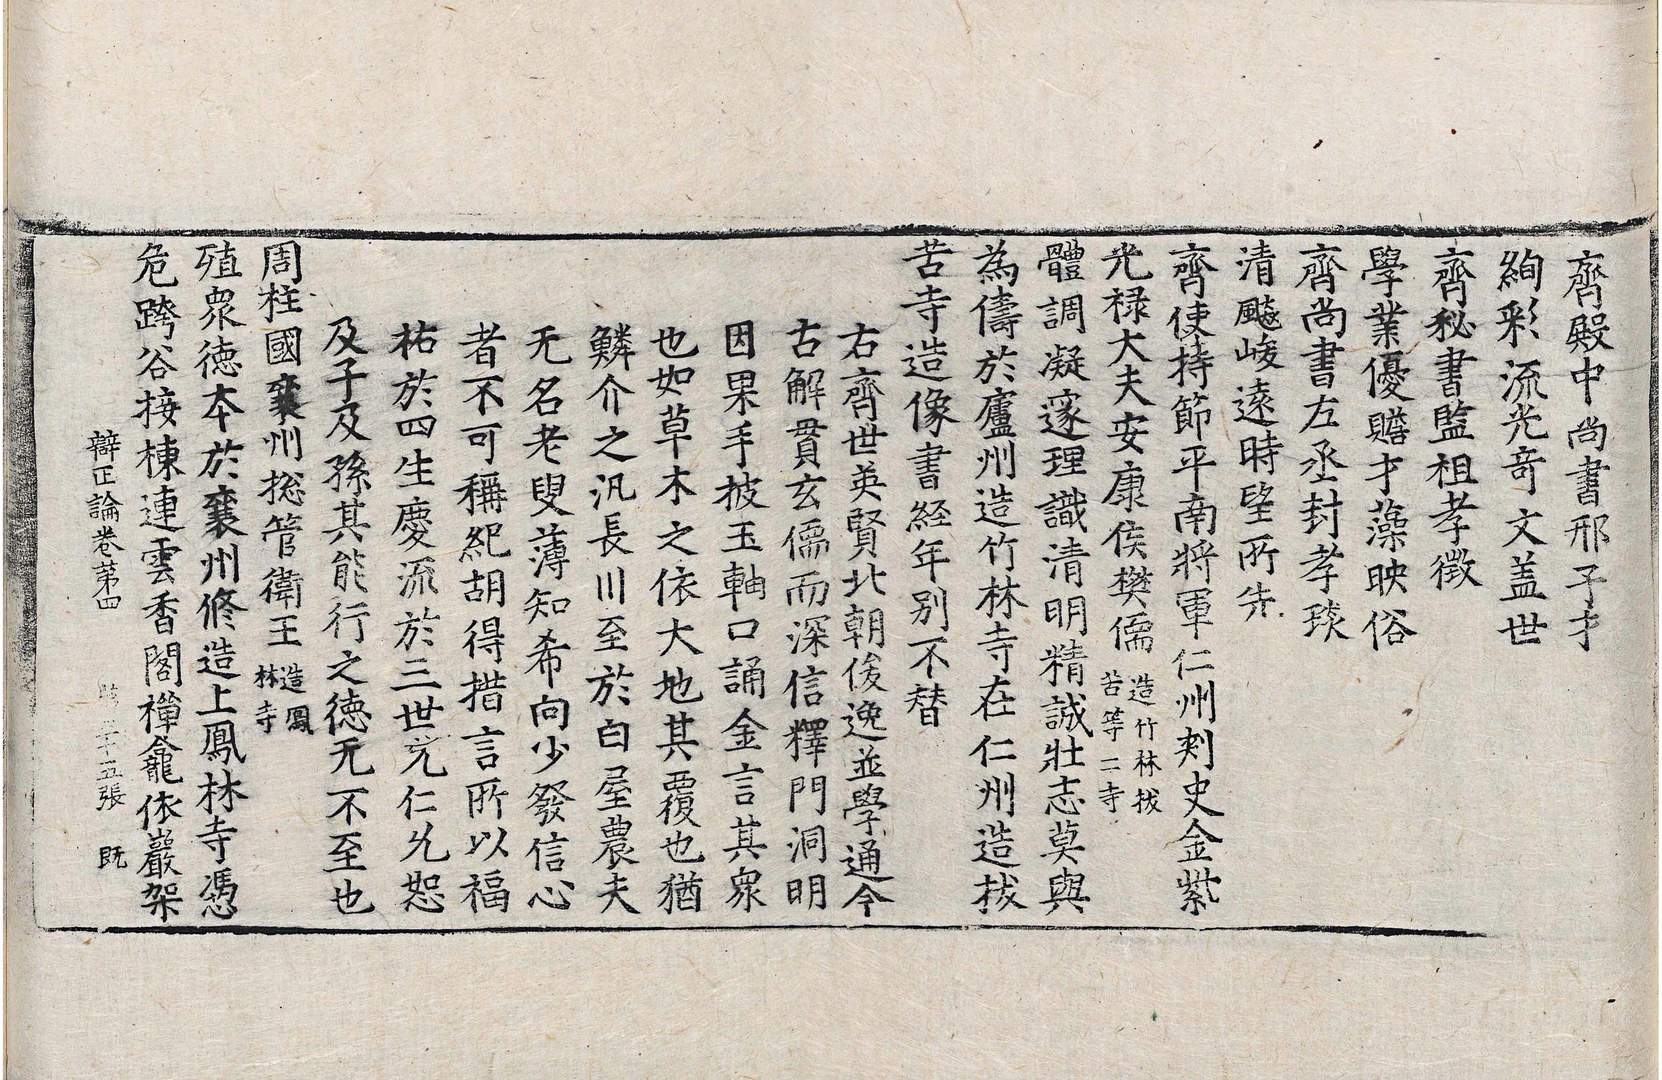 齊殿中尚書邢子才
絢彩流光奇文盖世
齊秘書監祖孝徵
學業優贍才藻映俗
齊尚書左丞封孝琰
清飈峻遠時望所先
齊使持節平南將軍仁州刾史金紫
光禄大夫安康侯樊儒造竹林拔苦等二寺
體調凝邃理識清明精誠壯志莫與
為儔於廬州造竹林寺在仁州造拔
苦寺造像書経年别不替
右齊世英賢北朝俊逸並學通今
古解貫玄儒而深信釋門洞明
因果手披玉軸口誦金言其衆
也如草木之依大地其覆也猶
鱗介之汎長川至於白屋農夫
无名老叟薄知希向少發信心
者不可稱紀胡得措言所以福
祐於四生慶流於三世光仁允恕
及子及孫其能行之徳无不至也
周柱國襄州捴管衛王造鳳林寺
殖衆徳本於襄州修造上鳳林寺憑
危跨谷接棟連雲香閣禪龕依巖架
辯正論卷苐四 五張 既